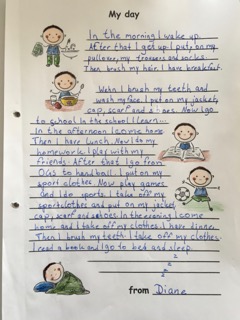 My day
In the morning I wake up.
After that I get up. I put on my
pullover, my trousers and socks.
Then brush my heir. I have breakfast.
When I brush my teeth and
wash my face. I put on my jacket,
cap, scarf and shoes. Now I go
to school. In the school I learn...
In the afternoon I come home.
Then I have lunch. Now I do my
homework. I play with my
friends. After that I go from
to handball. I put on my
sport clothes. Now play games.
And I do sport. I take off my
sportclothes and put on my jacket,
cap, scarf and shoes. In the evening I come
home and I take off my clothes. I have dinner.
Then I brush my teeth. I take off my clothes.
I read a book and I go to bed and sleep.
z z z z
from Diane